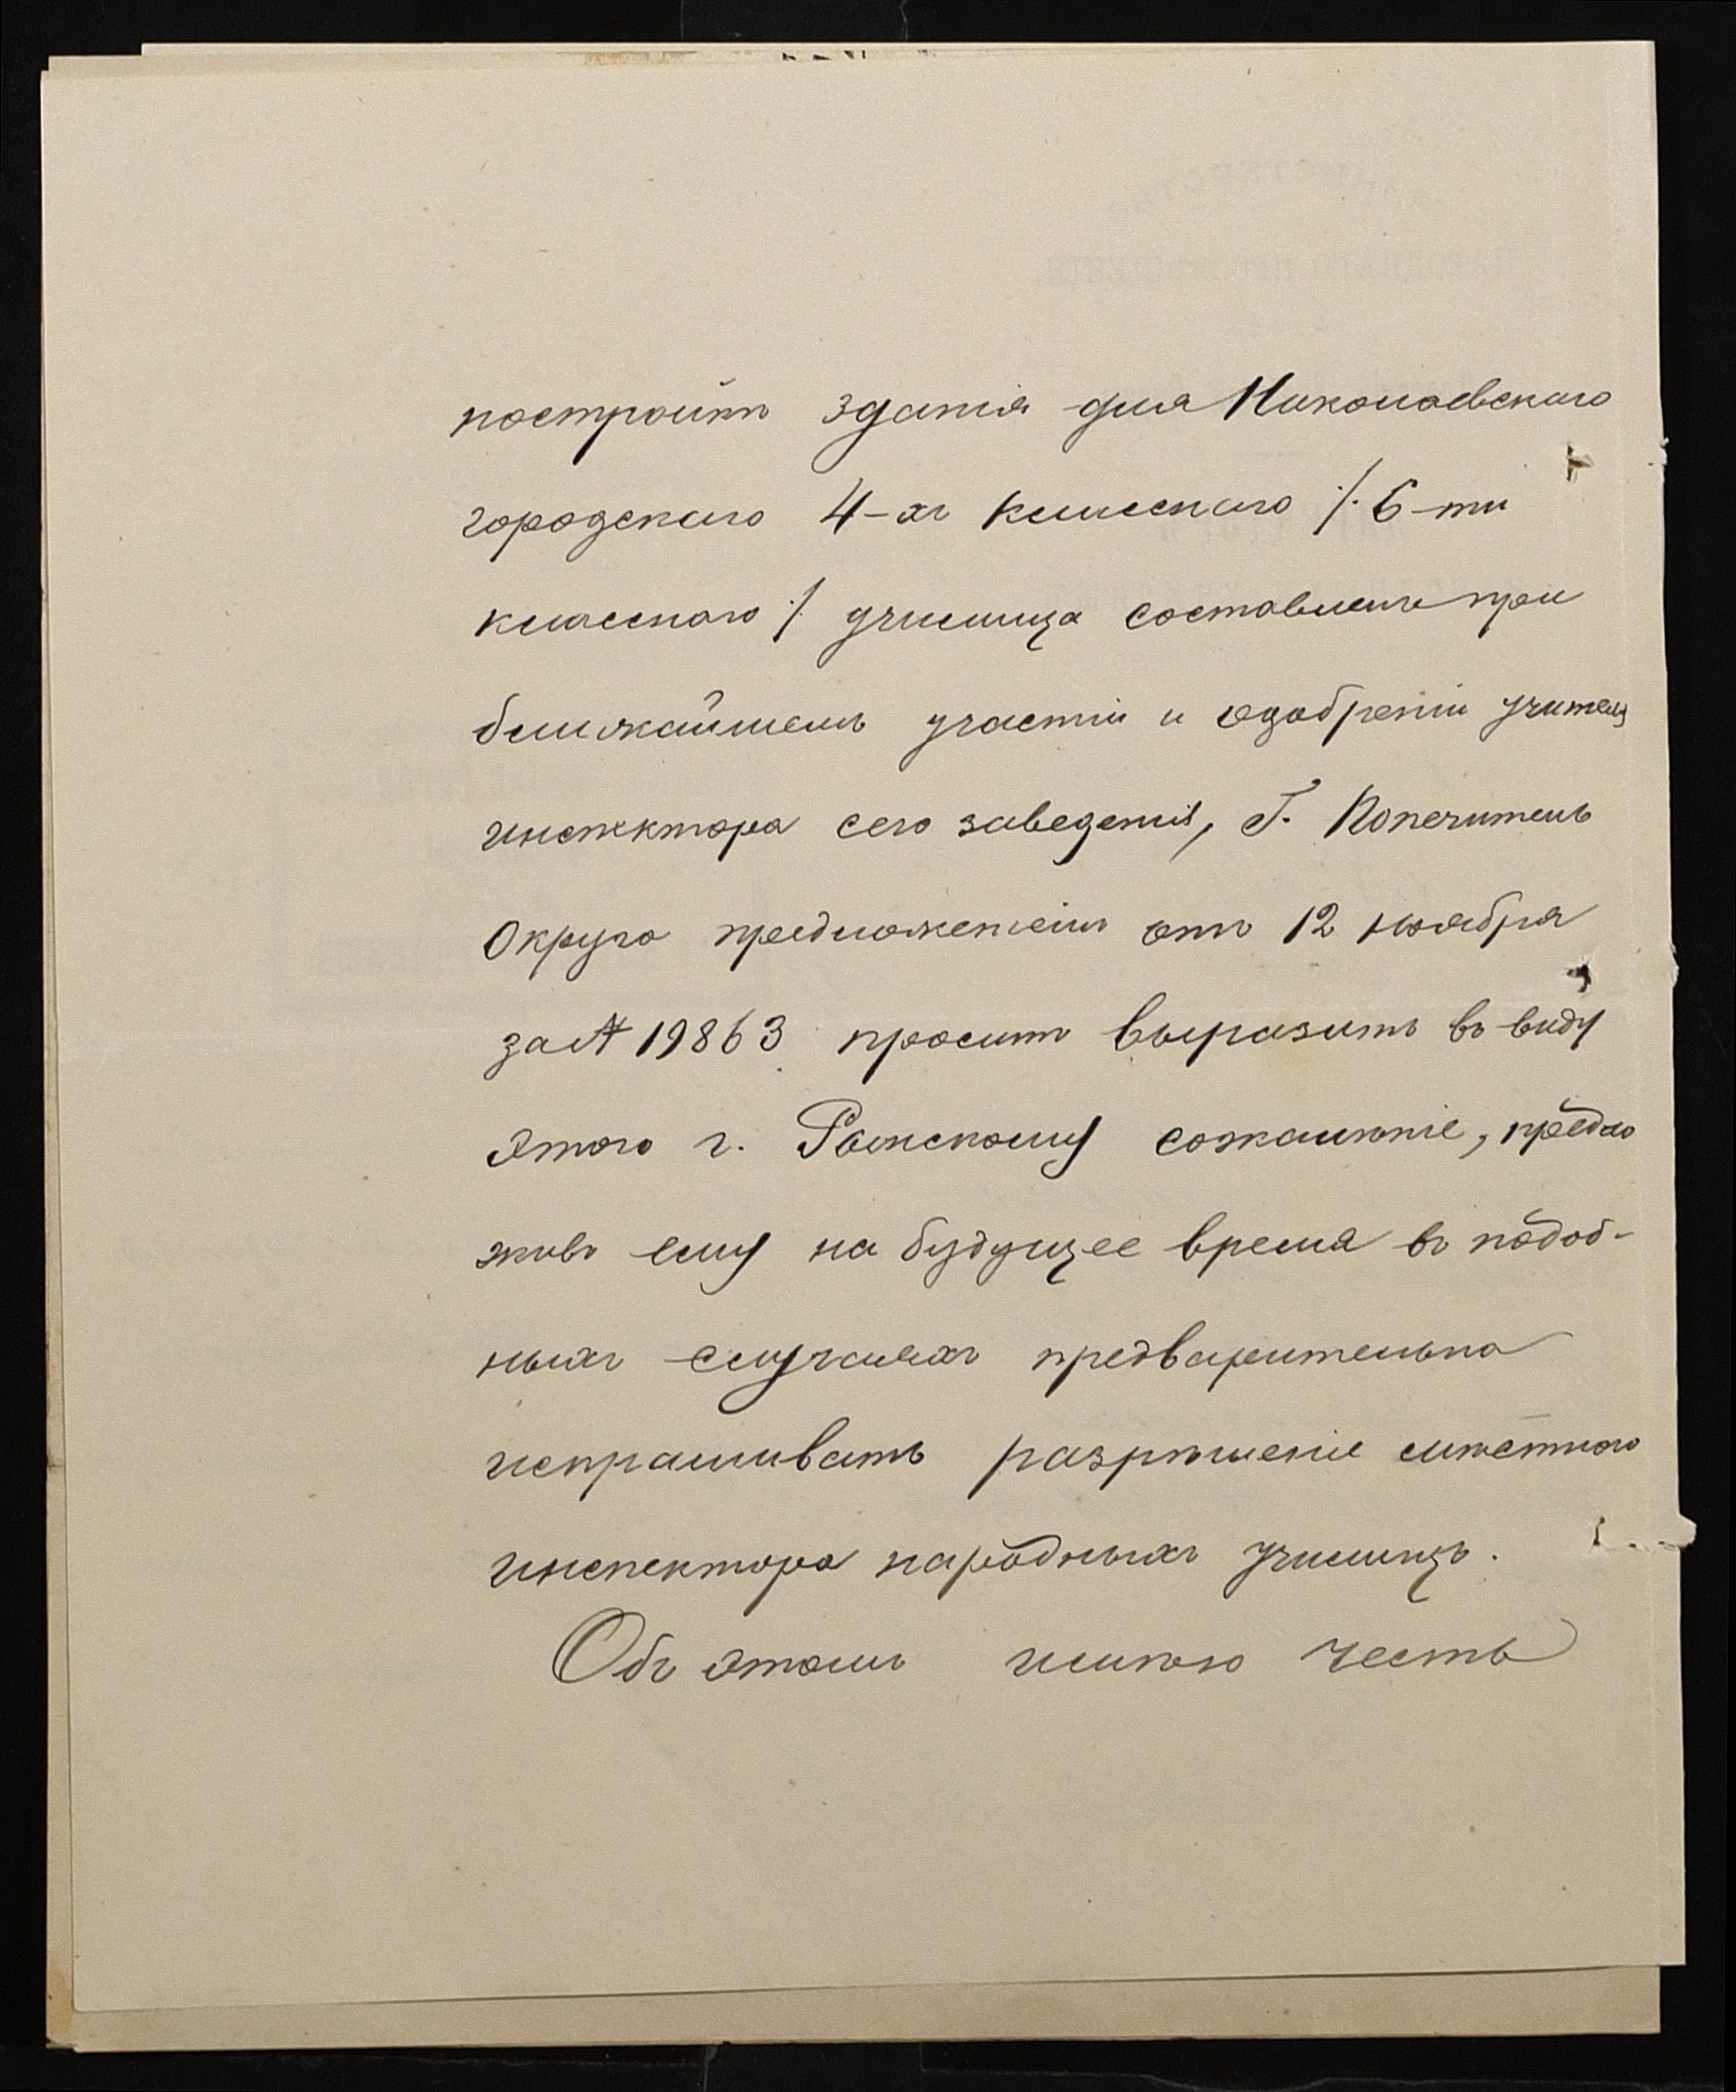 постройкѣ зданія для Николаевскаго
городскаго 4-хъ класснаго /. 6-ти
класснаго ./ училища составленъ при
ближайшемъ участіи и одобреніи учителя
инспектора сего заведенія, Г. Попечитель
Округа предложеніемъ отъ 12 ноября
за № 19863 проситъ выразить въ виду
этого г. сожалѣніе, предло
живъ ему на будущее время въ подоб-
ныхъ случаяхъ предварительно
испрашивать разрѣшеніе мѣстнаго
инспектора народныхъ училищъ.
Объ этомъ имѣю честь